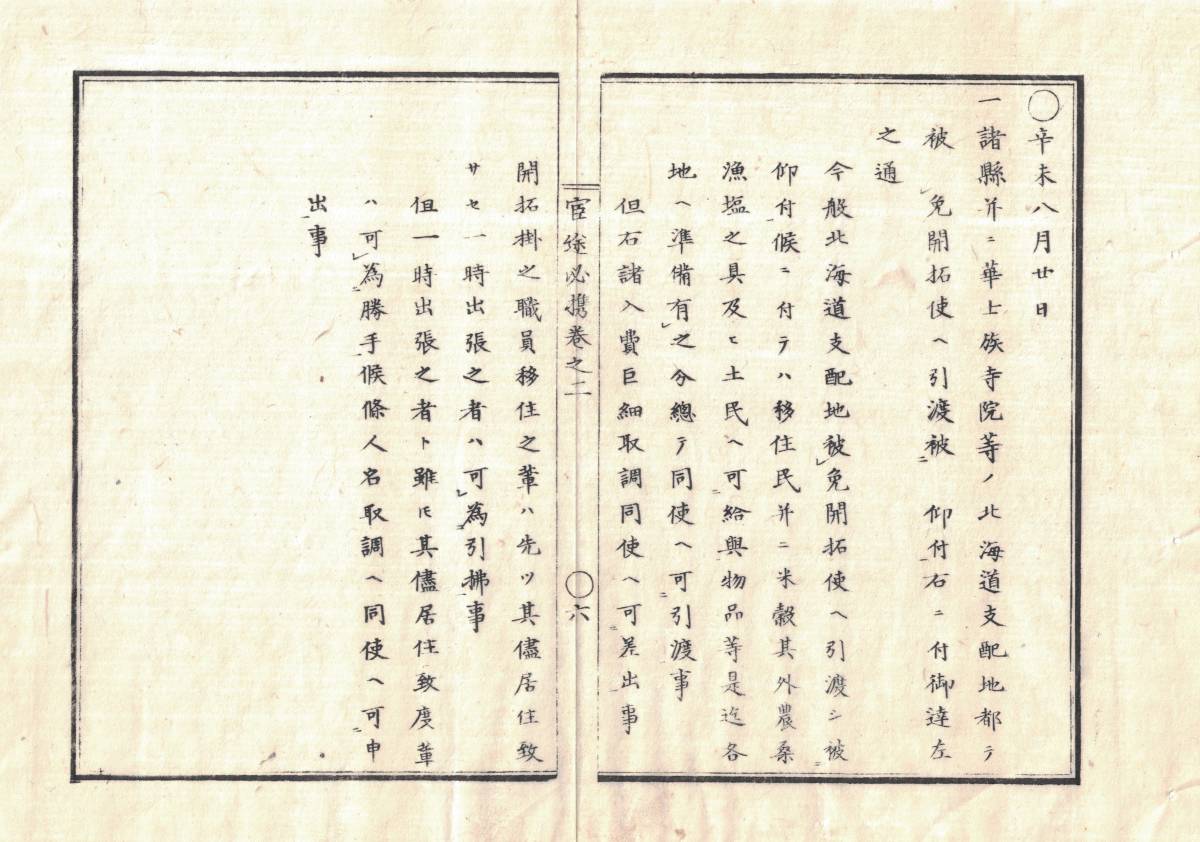 〇辛未八月廿日
一諸縣并ニ華士族寺院等ノ北海道支配地都テ
被免開拓使ヘ引渡被仰付右ニ付御達左
之通
今般北海道支配地被免開拓使ヘ引渡シ被
仰付候ニ付テハ移住民并ニ米穀其外農桑
漁塩之具及ヒ土民ヘ可給與物品等是迄各
地ヘ準備有之分總テ同使ヘ可引渡事
但右諸入費巨細取調同使ヘ可差出事
官途必携巻之二
〇六
開拓掛之職員移住之輩ハ先ツ其儘居住致
サセ一時出張之者ハ可為引拂事
但一時出張之者ト雖ㇳモ其儘居住致度輩
ハ可為勝手候條人名取調ヘ同使ヘ可申
出事